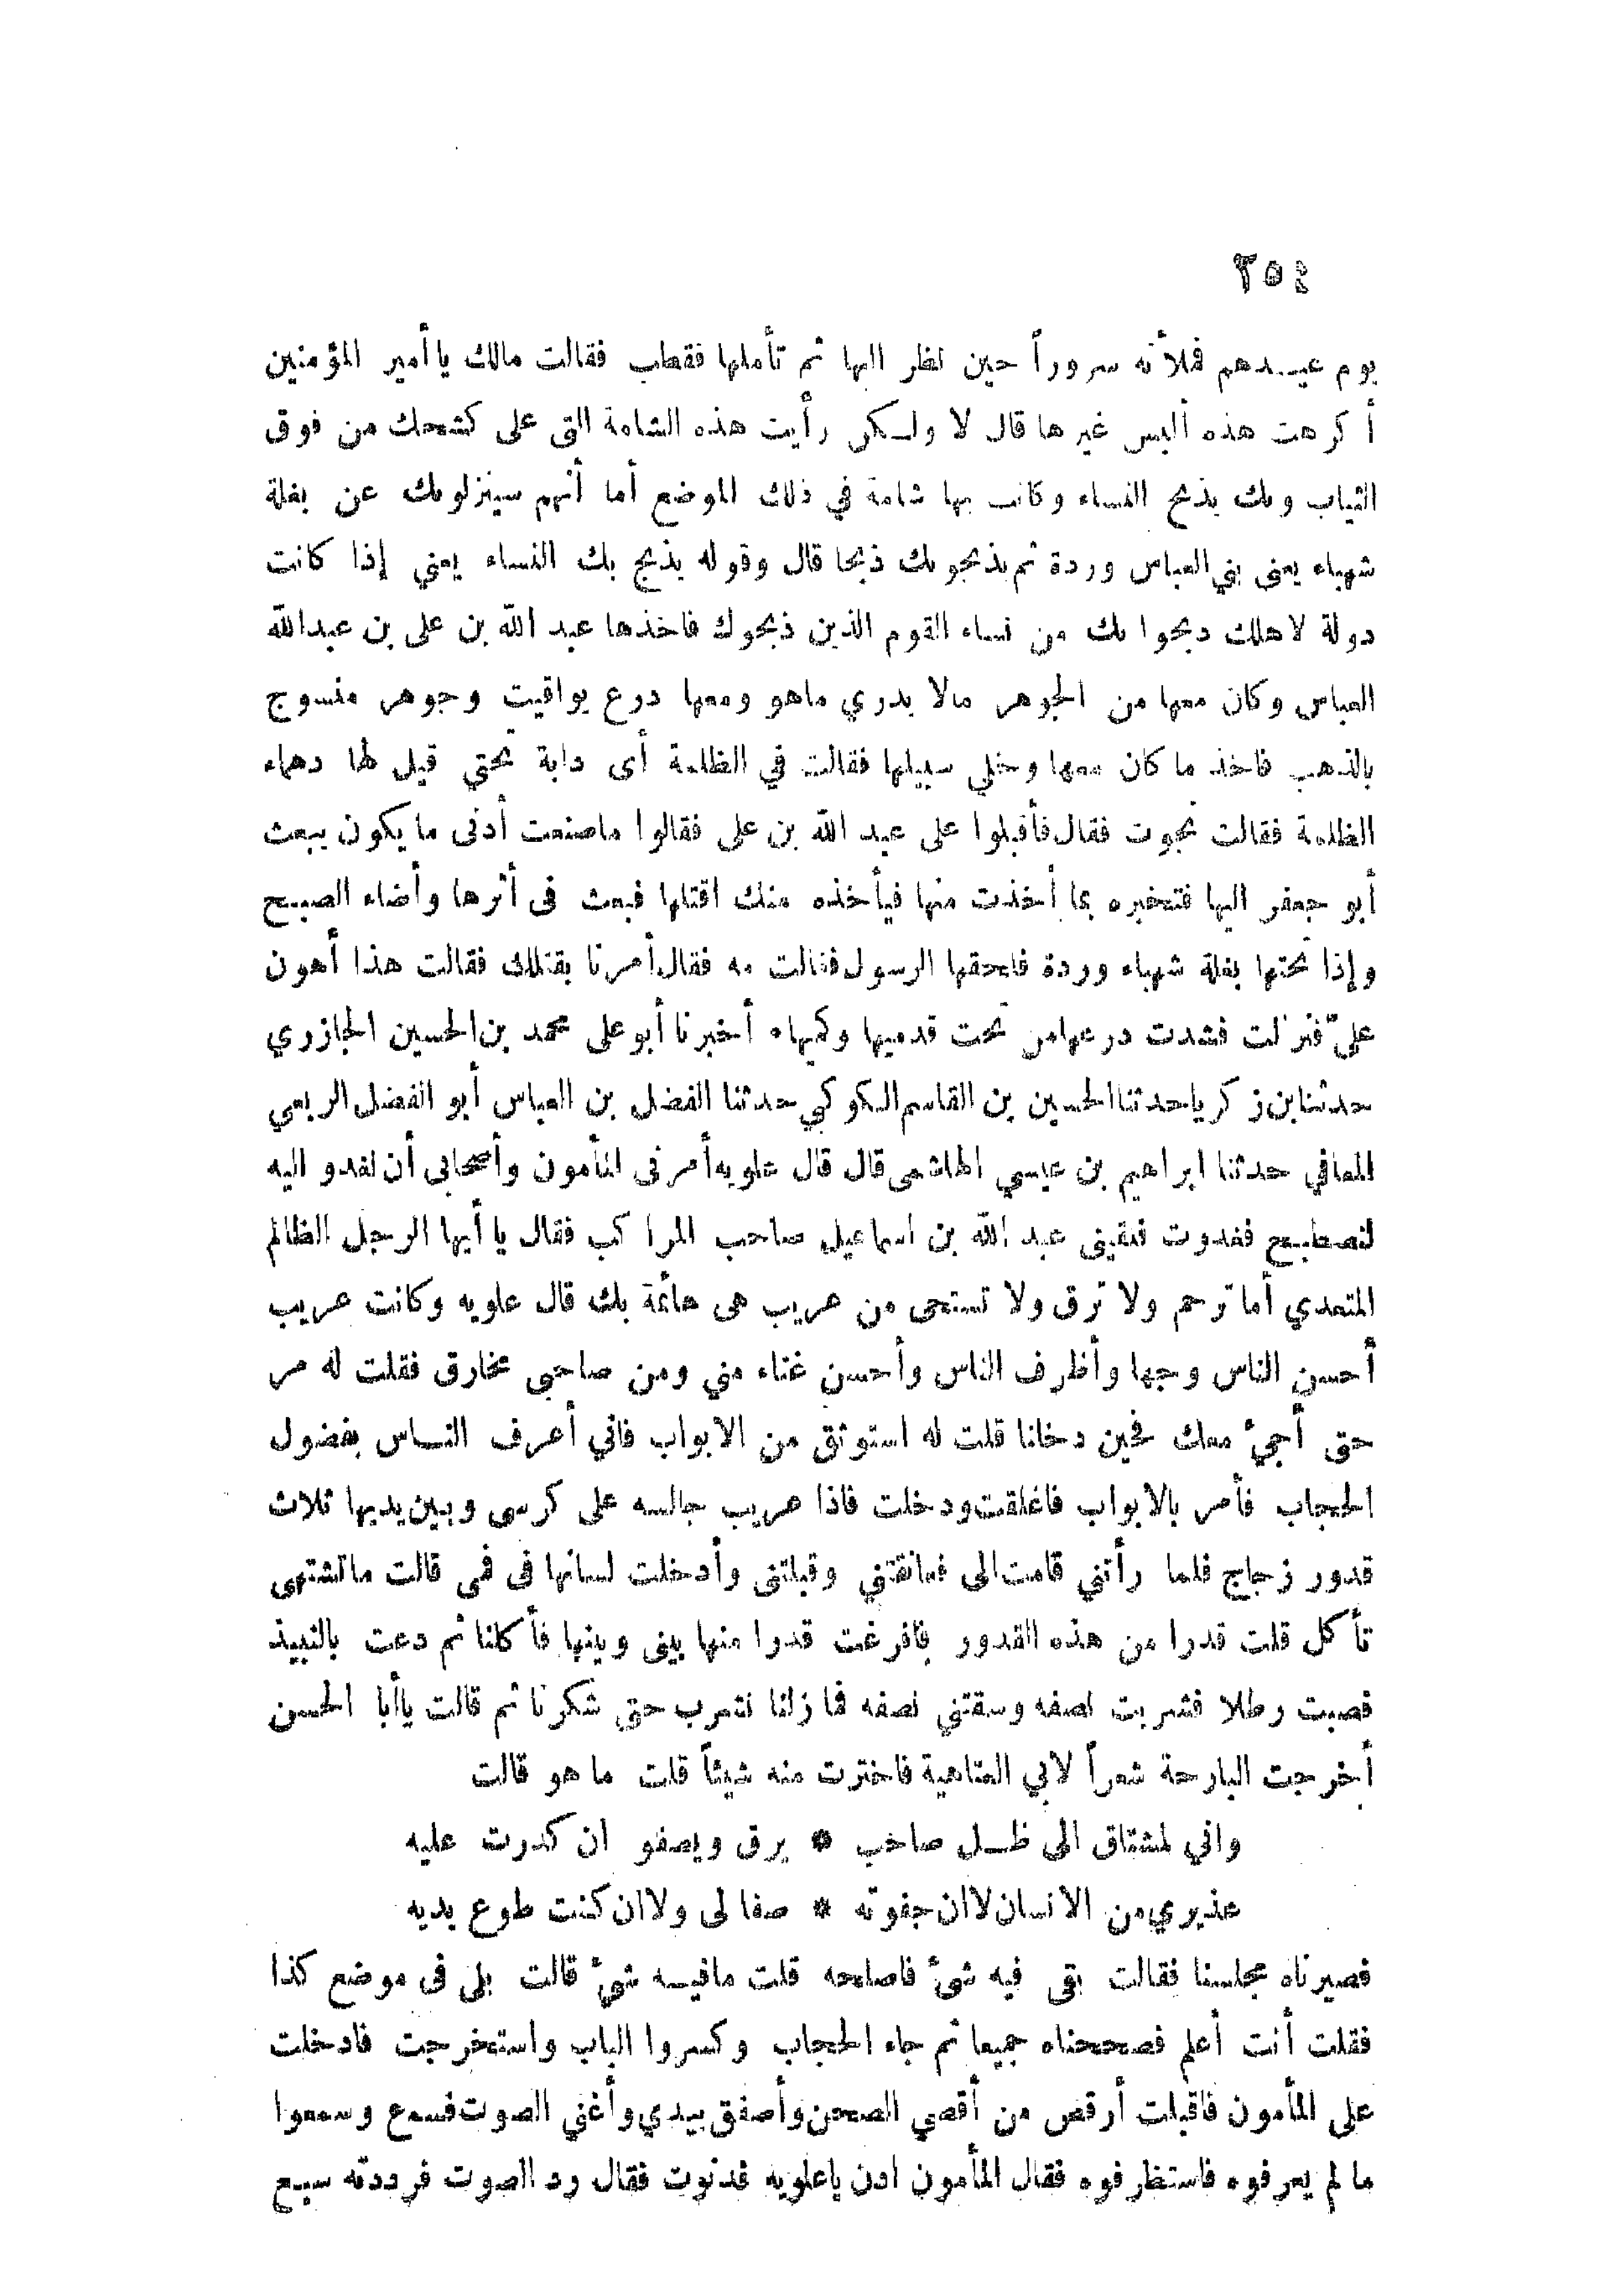 ٣٥٤
يوم عيدهم فملأنه سروراً حين نظر اليها ثم تأملها فقطب فقالت مالك يا أمير المؤمنين
أكرهت هذه ألبس غيرها قال لا ولكن رأيت هذه الشامة التي على كشحك من فوق
الثياب وبك يذبح النساء وكانت بها شامة في ذلك الموضع أما أنهم سينزلونك عن بغلة
شهباء يعنى بني العباس وردة ثم يذبحونك ذبحا قال وقوله يذبح بك النساء يعني إذا كانت
دولة لاهلك ذبحوا بك من نساء القوم الذين ذبحوك فاخذها عبد الله بن على بن عبدالله
العباس وكان معها من الجوهر مالا يدري ماهو ومعها درع يواقيت وجوهر منسوج
بالذهب فاخذ ما كان معها وخلي سبيلها فقالت في الظلمة أى دابة تحتي قيل لها دهماء
الظلمة فقالت نجوت فقال فأقبلوا على عبد الله بن على فقالوا ماصنعت أدنى ما يكون يبعث
أبو جعفر اليها فتخبره بما أخذت منها فيأخذه منك اقتلها فبعث فى أثرها وأضاء الصبح
وإذا تحتها بغلة شهباء وردة فلحقها الرسول فقالت مه فقال أمرنا بقتلك فقالت هذا أهون
علىّ فنزلت فشدت درعها من تحت قدميها وكميها ٠ أخبرنا أبو على محمد بن الحسين الجازري
حدثنا بن زكريا حدثنا الحسين بن القاسم الكوكبي حدثنا الفضل بن العباس أبو الفضل الربعي
المعافي حدثنا ابراهيم بن عيسي الهاشمى قال قال علويه أمرنى المأمون وأصحابى أن نغدو اليه
لنصطبح فغدوت فلقينى عبد الله بن اسماعيل صاحب المراكب فقال يا أيها الرجل الظالم
المتعدي أما ترحم ولا ترق ولا تستحى من عريب هى هائمة بك قال علويه وكانت عريب
أحسن الناس وجها وأظرف الناس وأحسن غناء مني ومن صاحبى مخارق فقلت له مر
حتى أجيْ معك فحين دخلنا قلت له استوثق من الابواب فاني أعرف الناس بفضول
الحجاب فأمر بالابواب فاغلقت ودخلت فاذا عريب جالسه على كرسى وبين يديها ثلاث
قدور زجاج فلما رأتني قامت الى فعانقتني وقبلتنى وأدخلت لسانها فى فمى قالت ماتشتهى
تأكل قلت قدرا من هذه القدور فافرغت قدرا منها بينى وبينها فأكلنا ثم دعت بالنبيذ
فصبت رطلا فشربت نصفه وسقتني نصفه فما زلنا نشرب حتى شكرنا ثم قالت يا أبا الحسن
أخرجت البارحة شعراً لابي العتاهية فاخترت منه شيئاً قلت ما هو قالت
واني لمشتاق الى ظل صاحب * يرق ويصفو ان كدرت عليه
عذيري من الانسان لا ان جفوته * صفا لى ولا ان كنت طوع يديه
فصيرناه مجلسنا فقالت بقى فيه شىْ فاصلحه قلت مافيه شىْ قالت بلى فى موضع كذا
فقلت أنت أعلم فصححناه جميعا ثم جاء الحجاب وكسروا الباب واستخرجت فادخلت
على المأمون فاقبلت أرقص من أقصي الصحن وأصفق بيدي وأغني الصوت فسمع وسمعوا
ما لم يعرفوه فاستظرفوه فقال المأمون ادن ياعلويه فدنوت فقال رد الصوت فرددته سبع